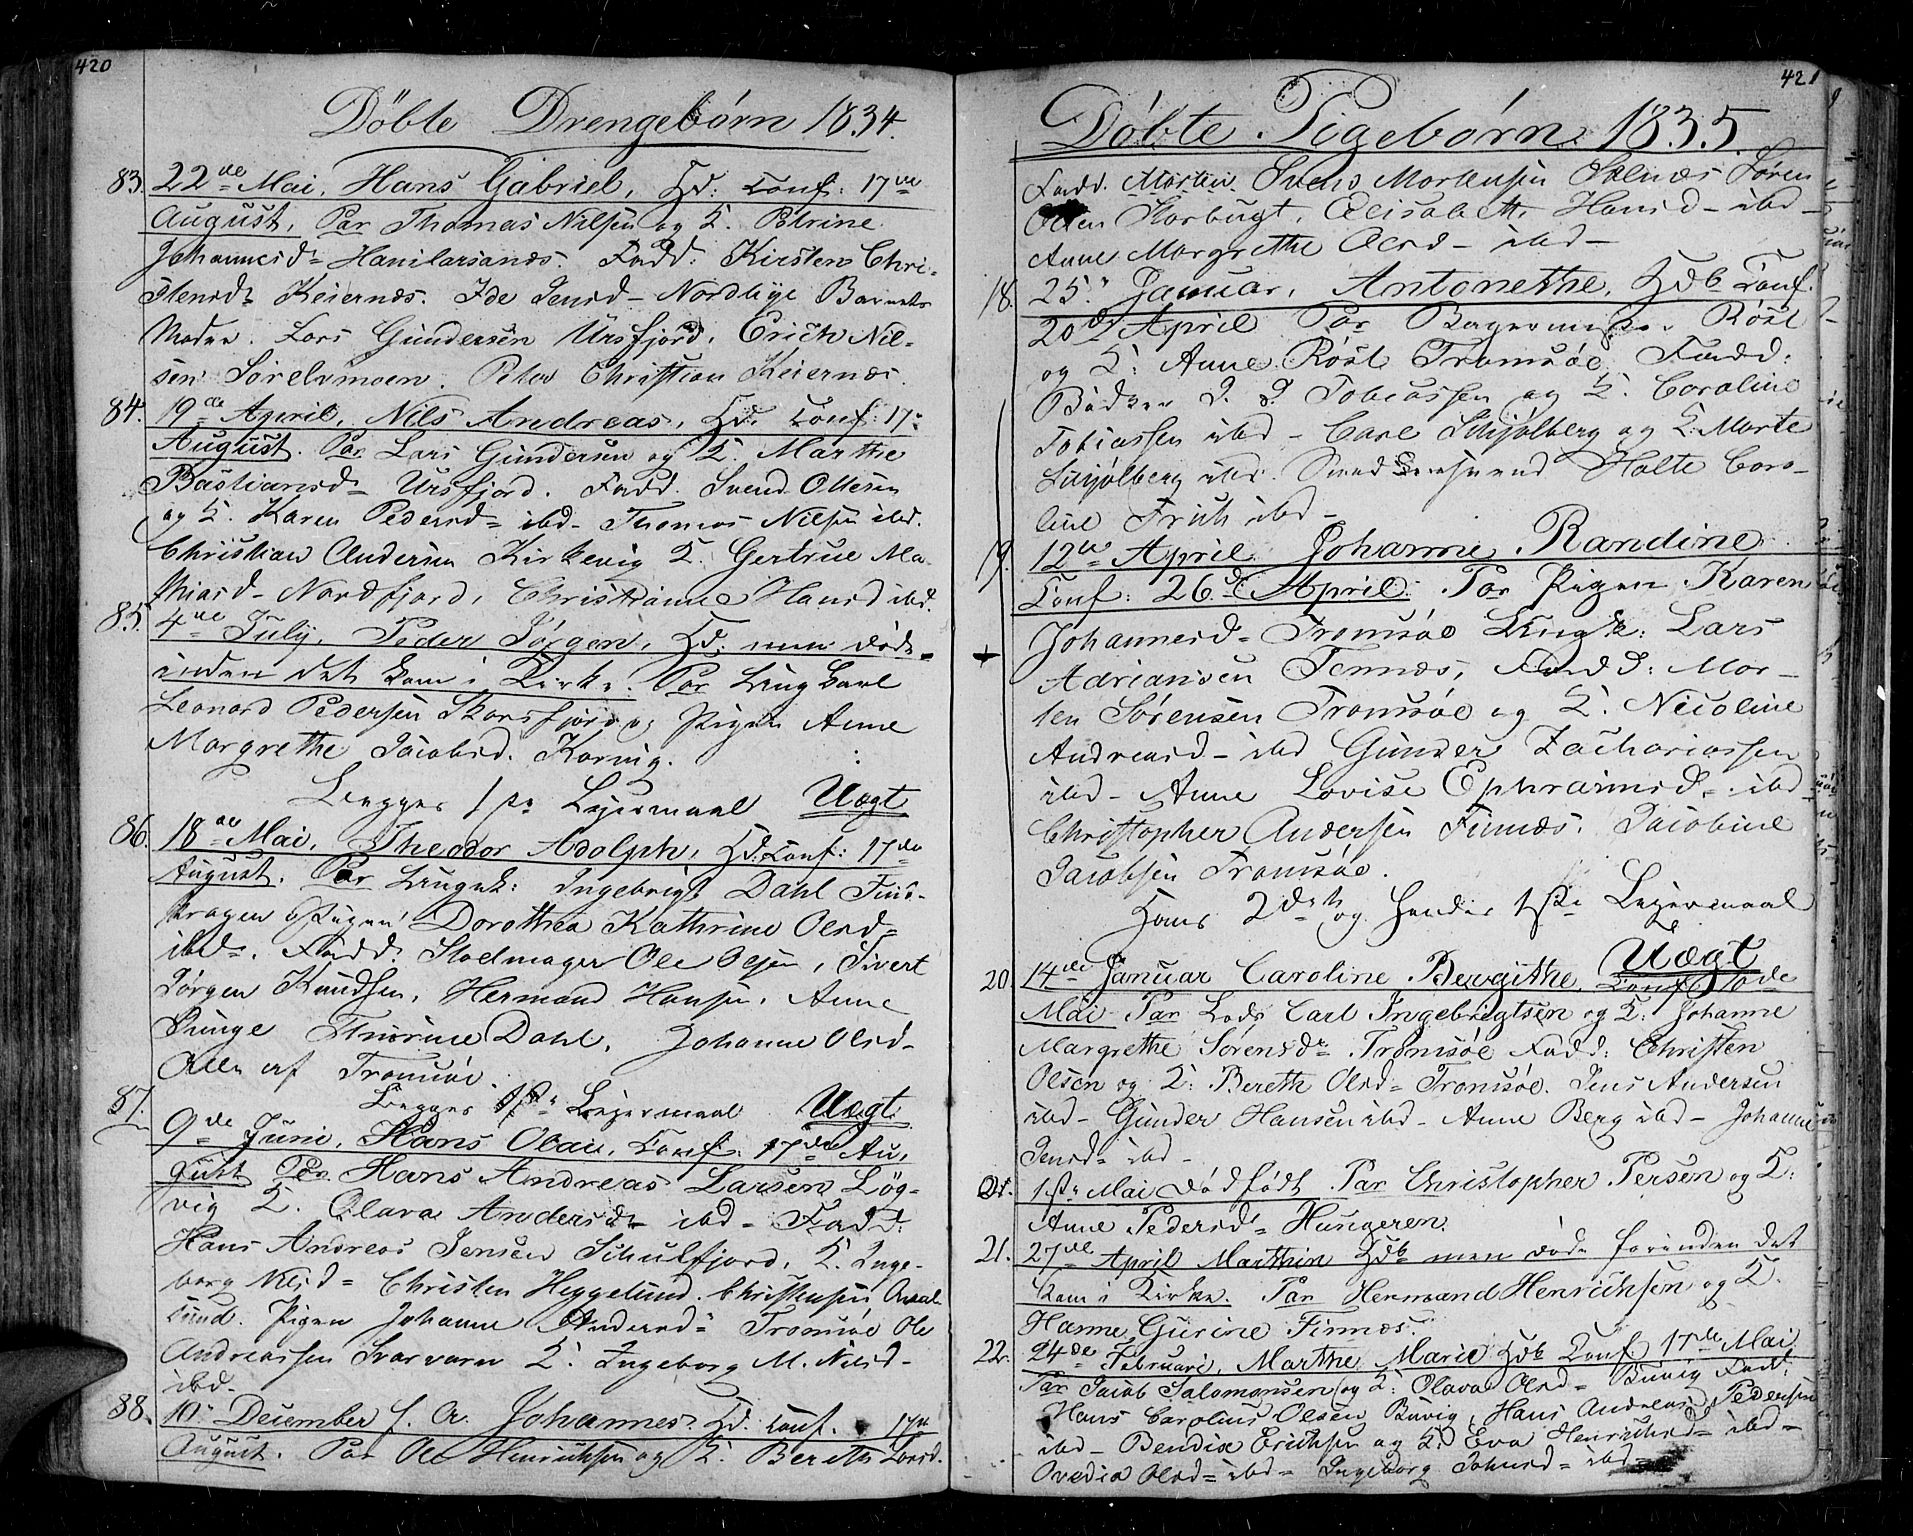 420
Döbte Drengebörn 1834.
83. 22de Mai, Hans Gabriel, Hd: Conf: 17de
August, Par Thomas Nilsen og K. Petrine
Johannesd= Hanilarsanæs. Fadd: Kirsten Chri-
stensd= Keiernæs. Ide Jensd- Nordbye Barnets
Moder. Lars Gundersen Ursfjord, Erich Nil-
sen Sörelvmoen. Peter Christian Keiernæs.
84. 19de April, Nils Andreas, Hd. Conf: 17=
August. Par Lars Gundersen og K. Marthe
Bastiansd= Ursfjord. Fadd. Svend Ottesen
og K. Karen Pedersd= ibd- Thomas Nilsen ibd.
Christian Andersen Kirkevig K. Gertrue Ma-
thiasd- Nordfjord, Christianne Hansd ibd.
85. 4de July, Peder Jörgen, Hd. men döde
inden det kom i Kirke. Par Ung Karl
Leonard Pedersen Skarsfjord og Pigen Anne
Margrethe Jacobsd. Karvig.
Begges 1ste Leiermaal Uægt
86. 18de Mai, Theodor Adolph, Hd. Conf: 17de
August. Par Ungk: Ingebrigt Dahl Fins-
kragen & Pigen Dorothea Kathrine Olsd=
ibd=. Fadd: Skolmager Ole Olsen, Sivert
Jörgen Knudsen, Hermand Hansen, Anne
Thurine Dahl, Johanne Olsd-
Alle af Tromsöe.
Begges 1ste Leiermaal Uægt
87. 9de Juni, Hans Olai, Conf. 17de Au-
gust Par Hans Andreas Larsen Lög-
vig K. Olava Andersd= ibd- Fadd:
Hans Andreas Jensen Schulfjord, K. Inge-
borg Nilsd= Christen Heggelund. Christensen
sund. Pigen Johanne Andersd= Tromsöe Ole
Andreassen Svarvaren K. Ingeborg M. Nilsd-
ibd-
88. 10= December f. A. Johannes. Hd. Conf. 17de
August. Par Ole Henrichsen og K. Bereth Larsd.
421
Döbte Pigebörn 1835.
Fadd. Morten Svens Mortensen Selnæs Sören
Olsen Storbugt, Elisabeth Hansd- ibd-
Anne Margrethe Olsd- ibd-
18. 25= Januar, Antonethe, Hdb Conf.
20de April Par Bagermester Röst
og K: Anne Röst Tromsöe, Fadd:
Bödker Tobiassen og K. Caroline
Tobiassen ibd- Carl Schjölberg og K. Marte
Schjölberg ibd. Holte Caro-
line Frich ibd-
19. 12te April Johanne Randine
Conf: 26de April. Par Pigen Karen
Johannesd= Tromsöe Ungk: Lars
Adriansen Tennæs, Fadd: Mor-
ten Sörensen Tromsöe og K. Nicoline
Andreasd- ibd Gunder Zachariassen
ibd- Anne Lovise Ephraimsd- ibd
Christopher Andersen Finnæs. Jacobine
Jacobsen Tromsöe.
Hans 2det og hendes 1ste Leiermaal
Uægt
20. 14de Januar Caroline Bergithe. Conf 10de
Mai Par Lods Carl Ingebrigtsen og K: Johanne
Margrethe Sörensd= Tromsöe Fadd: Christen
Olsen og K: Bereth Olsd= Tromsöe. Jens Andersen
ibd- Gunder Hansen ibd- Anne Berg ibd- Johanne
Jensd= ibd-
1ste Mai dödfödt Par Christopher Persen og K:
Anne Pedersd= Hungeren.
21. 27de April Marthin Hdb men döde forinden det
kom i Kirke. Par Hermand Henrichsen og K.
Hanne Gurine Finnæs.
22. 24de Februari, Marthe Marie Hdb Conf. 17de Mai
Par Jacob Salomonsen og K: Olava Olsd= Buvig Fadd:
Hans Carolius Olsen Buvig, Hans Andreas Pedersen
ibd- Bendix Erichsen og K. Eva Henrichsd= ibd=
Ovedia Olsd= ibd= Ingeborg Johnsd= ibd=